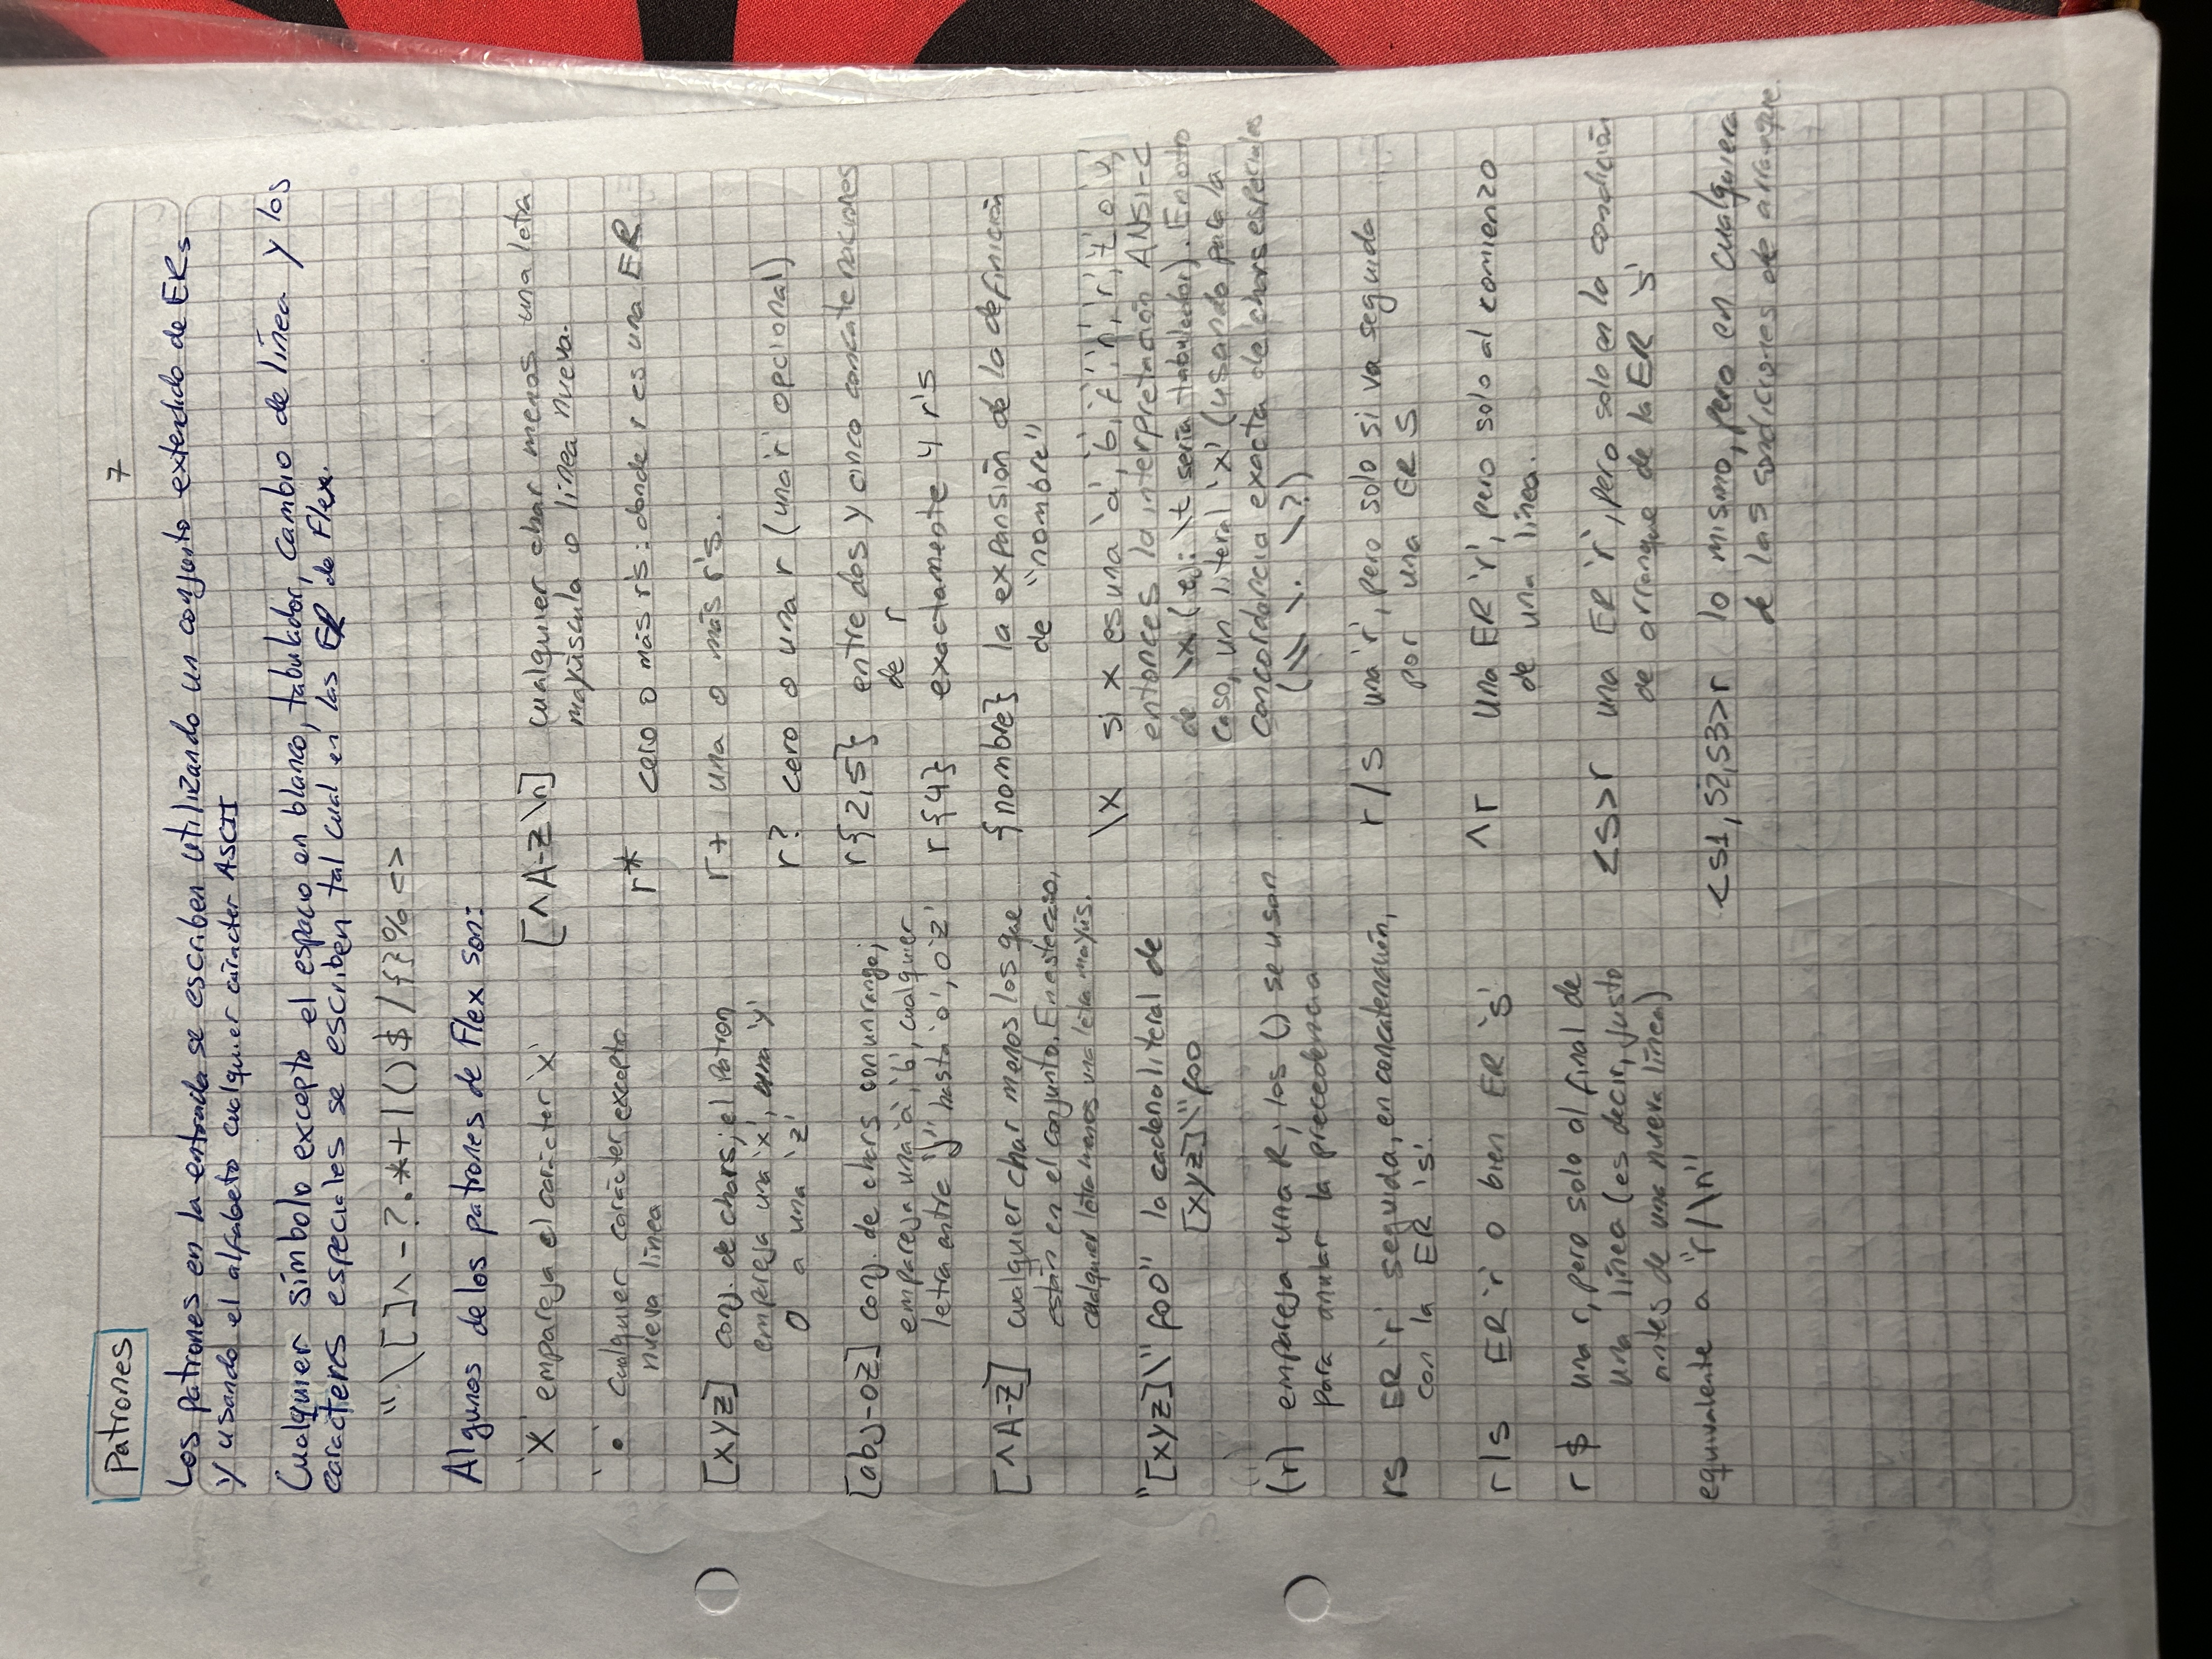 Patrones
7
Los patrones en la entrada se escriben utilizando un conjunto extendido de ERs
y usando el alfabeto cualquier carácter ASCII
Cualquier símbolo excepto el espacio en blanco, tabulador, cambio de línea y los
caracteres especiales se escriben tal cual en las ER de Flex.
"\[]^-?.*+|()$/{}%<>
Algunos de los patrones de Flex son:
'x' empareja el carácter 'x'
'.' cualquier carácter excepto
nueva línea
[xyz] conj. de chars; el patron
empareja una 'x', una 'y'
o a una 'z'
[abj-oz] conj. de chars con un rango;
empareja una 'a', 'b', cualquier
letra entre "j" hasta 'o', o 'z'
[^A-Z] cualquier char menos los que
están en el conjunto. En este caso,
cualquier letra menos una letra mayús.
"[xyz]\"foo" la cadena literal de
[xyz]\"foo
(r) empareja una R; los () se usan
para anular la precedencia
rs ER 'r' seguida, en concatenación,
con la ER 's'.
r|s ER 'r' o bien ER 's'
r$ una r, pero solo al final de
una línea (es decir, justo
antes de una nueva línea)
equivalente a "r/\n"
[^A-Z\n] cualquier char menos una letra
mayúscula o línea nueva.
r* cero o más r's: donde r es una ER
r+ una o más r's.
r? cero o una r (una 'r' opcional)
r{2,5} entre dos y cinco concatenaciones
de r
r{4} exactamente 4 r's
{nombre} la expansión de la definición
de "nombre"
\x si x es una 'a', 'b', 'f', 'n', 'r', 't' o 'v',
entonces la interpretación ANSI-C
de \x (ej: \t sería tabulador). En otro
caso, un literal 'x' (usando para la
concordancia exacta de chars especiales
(\\ \. \?)
r/s una 'r', pero solo si va seguida
por una ER S
^r una ER 'r', pero solo al comienzo
de una línea.
<s>r una ER 'r', pero solo en la condición
de arranque de la ER 's'
<s1,s2,s3>r lo mismo, pero en cualquiera
de las condiciones de arranque.